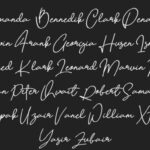 manda Bennedik Clark Dena
Arank Georgia Husen
ed Klark Leonard Marvin
Peter Robert Sama
pak Uzair Vanel William X
Yasir Zubair